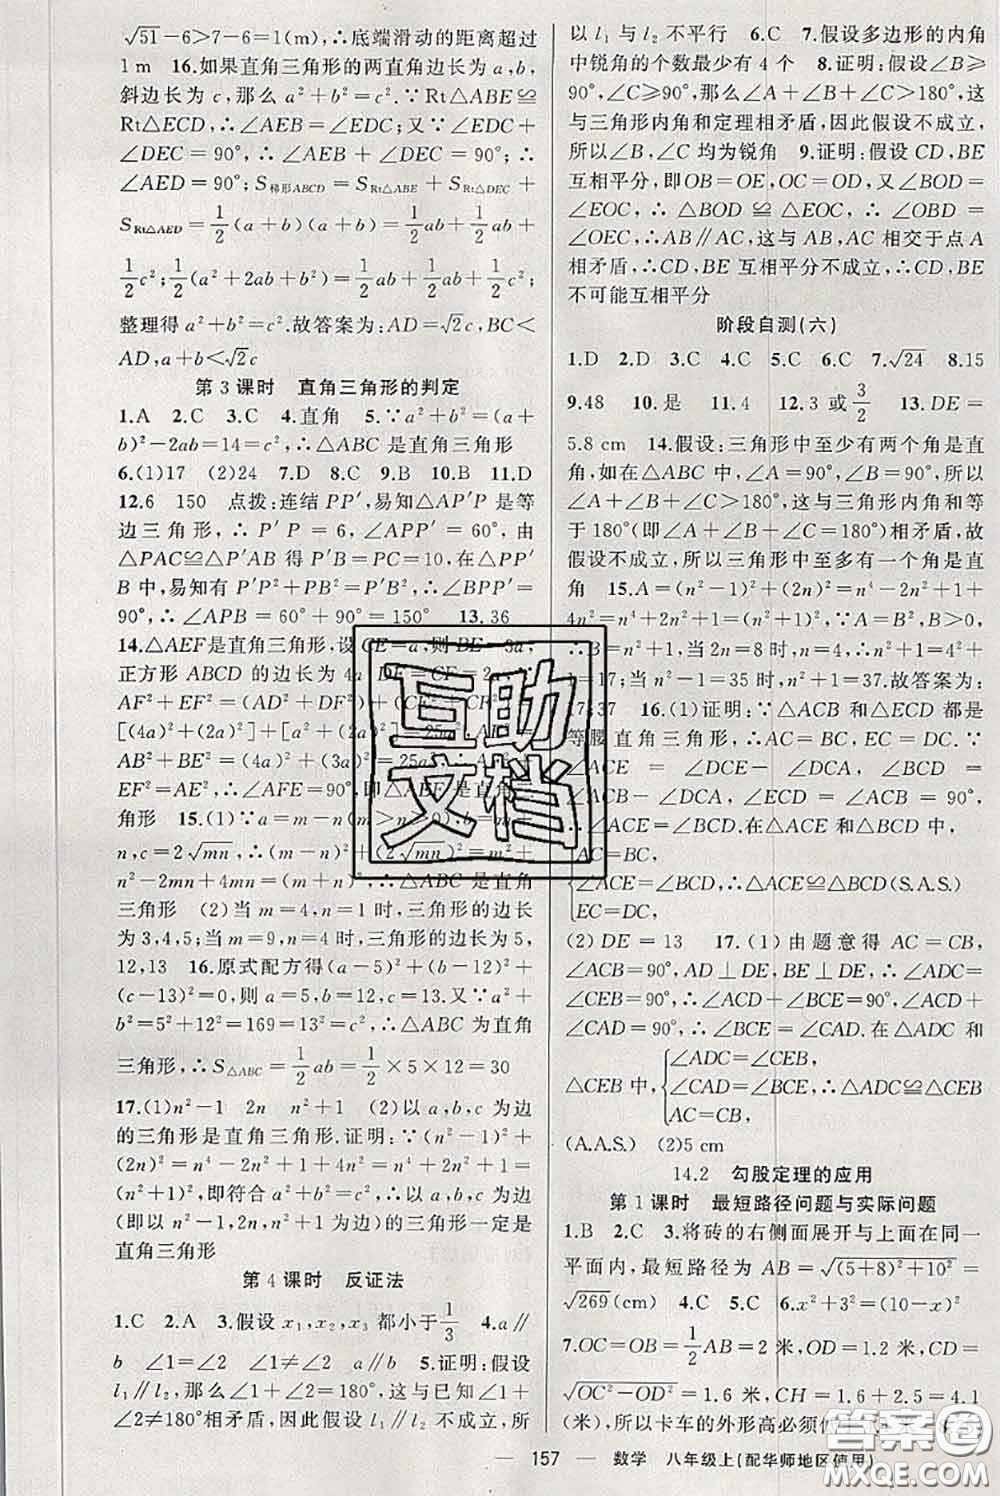 √51-6>7-6=1(m),∴底端滑动的距离超过
1 m　16.如果直角三角形的两直角边长为a,b,
斜边长为c,那么a²+b²=c².∵Rt△ABE≌
Rt△ECD,∴∠AEB=∠EDC;又∵∠EDC+
∠DEC=90°,∴∠AEB+∠DEC=90°,∴
∠AED=90°;S梯形ABCD=SRt△ABE+SRt△DEC+
SRt△AED=1/2(a+b)(a+b)=1/2ab+1/2ab+
1/2c²;1/2(a²+2ab+b²)=1/2ab+1/2ab+1/2c²,
整理得a²+b²=c².故答案为:AD=√2c,BC<
AD,a+b<√2c
第3课时　直角三角形的判定
1.A　2.C　3.C　4.直角　5.∵a²+b²=(a+
b)²-2ab=14=c²,∴△ABC是直角三角形
6.(1)17　(2)24　7.D　8.C　9.B　10.B　11.D
12.6　150　点拨:连结PP′,易知△AP′P是等
边三角形,∴P′P=6,∠APP′=60°,由
△PAC≌△P′AB得P′B=PC=10,在△BPP′
中,易知有P′P²+PB²=P′B²,∴∠BPP′=
90°,∴∠APB=60°+90°=150°　13.36
14.△AEF是直角三角形,设CE=a,则BE=3a,
正方形ABCD的边长为4a,DF=CF=2a,∴
AF²+EF²=(AD²+DF²)+(CF²+
[(4a)²+(2a)²]+[(2a)²+a²]=25a²
AB²+BE²=(4a)²+(3a)²=25a²
EF²=AE²,∴∠AFE=90°,∴△AEF是直角三
角形　15.(1)∵a=m-n(m>n>0),b=m+
n,c=2√mn,∴(m-n)²+(2√mn)²=m²+
n²-2mn+4mn=(m+n)²,∴△ABC是直角
三角形　(2)当m=4,n=1时,三角形的边长
为3,4,5;当m=9,n=4时,三角形的边长为5,
12,13　16.原式配方得(a-5)²+(b-12)²+
(c-13)²=0,则a=5,b=12,c=13.又∵a²+
b²=5²+12²=169=13²=c²,∴△ABC为直角
三角形,∴S△ABC=1/2ab=1/2×5×12=30
17.(1)n²-1　2n　n²+1　(2)以a,b,c为边
的三角形是直角三角形.证明:∵(n²-1)²+
(2n)²=n⁴-2n²+1+4n²=n⁴+2n²+1=
(n²+1)²,即符合a²+b²=c²,∴以a,b,c为边
(即以n²-1,2n,n²+1)的三角形一定是
直角三角形
第4课时　反证法
1.C　2.A　3.假设x₁,x₂,x₃都小于1/3　4.a∥
b　∠1=∠2　∠1≠∠2　a∥b　5.证明:假设
l₁∥l₂,那么∠1+∠2=180°,这与已知∠1+
∠2≠180°相矛盾,因此假设l₁∥l₂不成立,所
以l₁与l₂不平行　6.C　7.假设多边形的内角
中锐角的个数最少有4个　8.证明:假设∠B≥
90°,∠C≥90°,那么∠A+∠B+∠C>180°,这
与三角形内角和定理相矛盾,因此假设不成立,
所以∠B,∠C均为锐角　9.证明:假设CD,BE
互相平分,即OB=OE,OC=OD,又∠BOD=
∠EOC,∴△BOD≌△EOC,∴∠OBD=
∠OEC,∴AB∥AC,这与AB,AC相交于点A
相矛盾,∴CD,BE互相平分不成立,∴CD,BE
不可能互相平分
阶段自测(六)
1.D　2.D　3.C　4.C　5.C　6.C　7.√24　8.15
9.48　10.是　11.4　12.3或3/2　13.DE=
5.8 cm　14.假设:三角形中至少有两个角是直
角,如在△ABC中,∠A=90°,∠B=90°,所以
∠A+∠B+∠C>180°,这与三角形内角和等
于180°(即∠A+∠B+∠C=180°)相矛盾,故
假设不成立,所以三角形中至多有一个角是直
角　15.A=(n²-1)²+(2n)²=n⁴-2n²+1+
4n²=n⁴+2n²+1=(n²+1)².∵A=B²,B>0,
∴B=n²+1,当2n=8时,n=4,∴n²+1=4²+
1=17;当n²-1=35时,n²+1=37.故答案为:
17,37　16.(1)证明:∵△ACB和△ECD都是
等腰直角三角形,∴AC=BC,EC=DC.∵
∠ACE=∠DCE-∠DCA,∠BCD=
∠ACB-∠DCA,∠ACB=∠ECD=90°,
∴∠ACE=∠BCD.在△ACE和△BCD中,
AC=BC,
∠ACE=∠BCD,∴△ACE≌△BCD(S.A.S.)
EC=DC,
(2)DE=13　17.(1)由题意得AC=CB,
∠ACB=90°,AD⊥DE,BE⊥DE,∴∠ADC=
∠CEB=90°,∴∠ACD+∠BCE=90°,∠ACD+
∠CAD=90°,∴∠BCE=∠CAD.在△ADC和
△CEB中,
∠ADC=∠CEB,
∠CAD=∠BCE,∴△ADC≌△CEB
AC=CB,
(A.A.S.)　(2)5 cm
14.2　勾股定理的应用
第1课时　最短路径问题与实际问题
1.B　2.C　3.将砖的右侧面展开与上面在同一
平面内,最短路径为AB=√(5+8)²+10²=
√269(cm)　4.C　5.C　6.x²+3²=(10-x)²
7.OC=OB=1/2AB=2米,OD=1.2米,CD=
√OC²-OD²=1.6米,CH=1.6+2.5=4.1
(米),所以卡车的外形高必须低
157　数学　八年级上(配华师地区使用)
互助
文档
答案圈
MXQE.COM